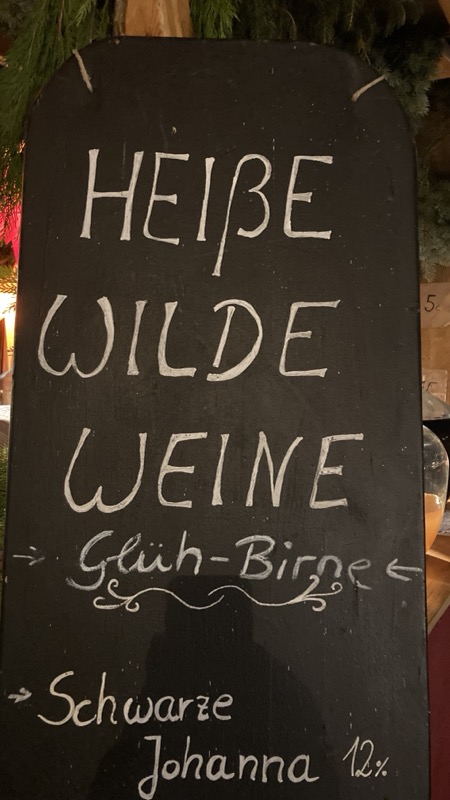 HEIßE
WILDE
WEINE
→ Glüh-Birne ←
→ Schwarze
Johanna 12%